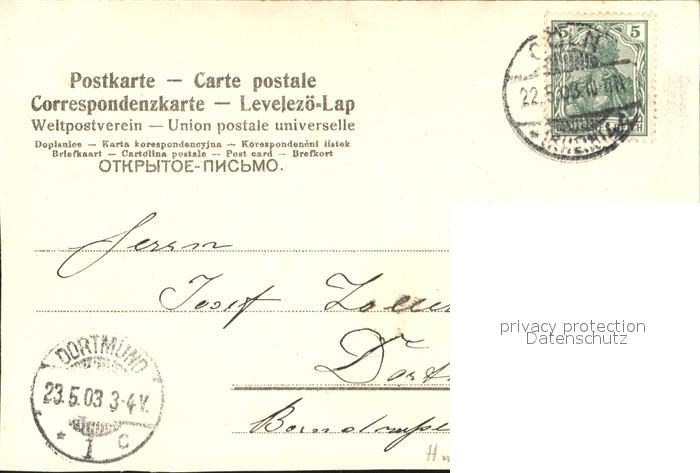 Postkarte — Carte postale
Correspondenzkarte — Levelező-Lap
Weltpostverein — Union postale universelle
Dopisnice — Karta korespondencyjna — Korespondenčni listek
Briefkaart — Cartolina postale — Post card — Brefkort
ОТКРЫТОЕ-ПИСЬМО.
5 5
22.5.03
Herrn
Josef
privacy protection
Datenschutz
DORTMUND
23.5.03 3-4V.
* 1 c